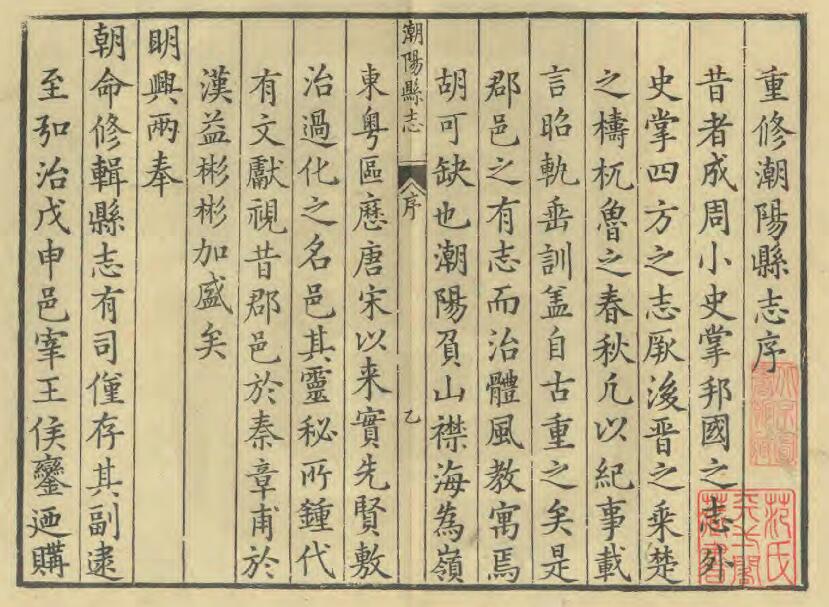 重修潮陽縣志序
昔者成周小史掌邦國之志外
史掌四方之志厥後晋之乘楚
之檮杌魯之春秋凡以紀事載
言昭軌垂訓盖自古重之矣是
郡邑之有志而治體風教寓焉
胡可缺也潮陽負山襟海為嶺
潮陽縣志 序 乙
東粤區歷唐宋以来實先賢敷
治過化之名邑其靈秘所鍾代
有文獻視昔郡邑於秦章甫於
漢益彬彬加盛矣
明興兩奉
朝命修輯縣志有司僅存其副逮
至弘治戊申邑宰王侯鑾廼購
范氏天一閣藏書